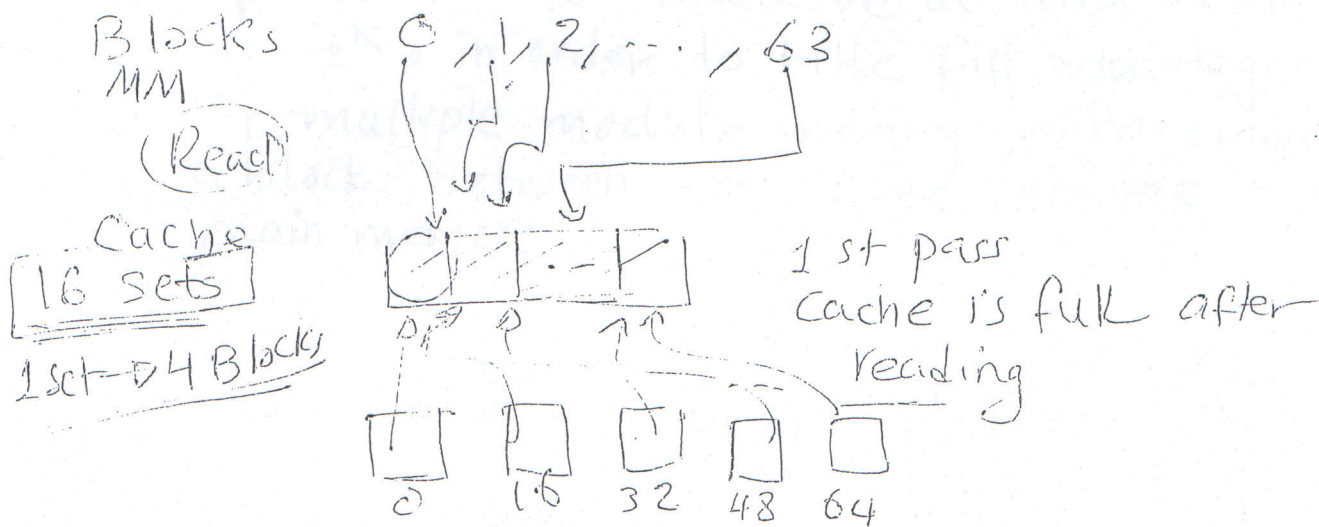 Blocks 0, 1, 2, . . . , 63
MM
Read
Cache
16 sets
1 set → 4 Blocks
1 st pass
Cache is full after
reading
0 16 32 48 64